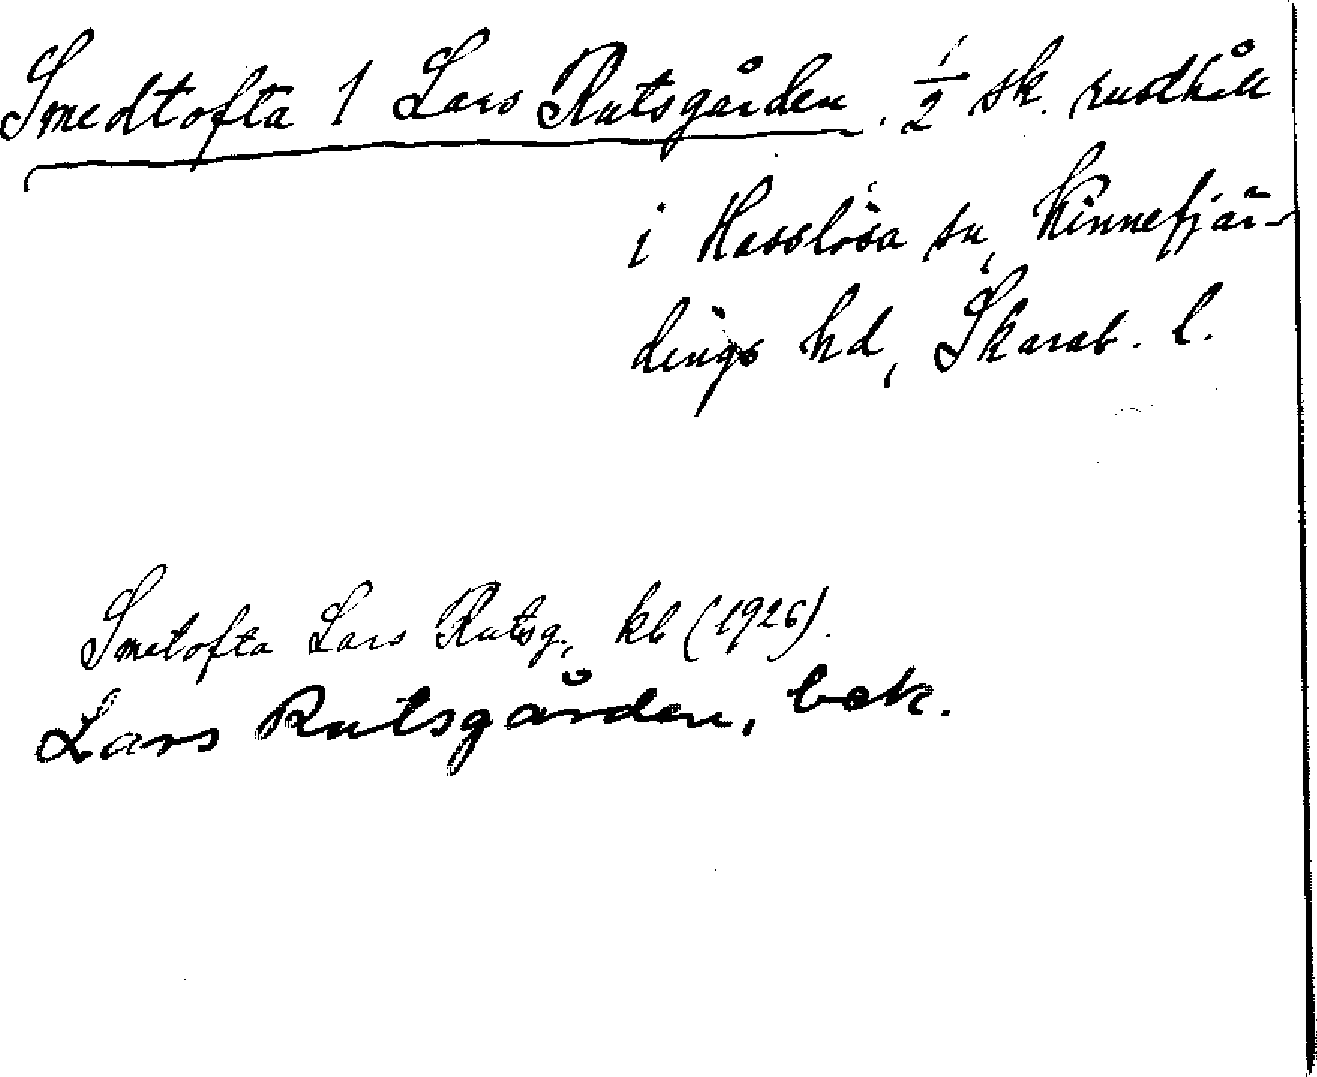 Smedtofta 1 Lars Rutsgården. 1/2 sk. rusthåll
i Hasslösa sn, Kinnefjär-
dings hd, Skarab. l.
Smetofta Lars Rutsg., kb (1926).
Lars Rutsgården, bek.